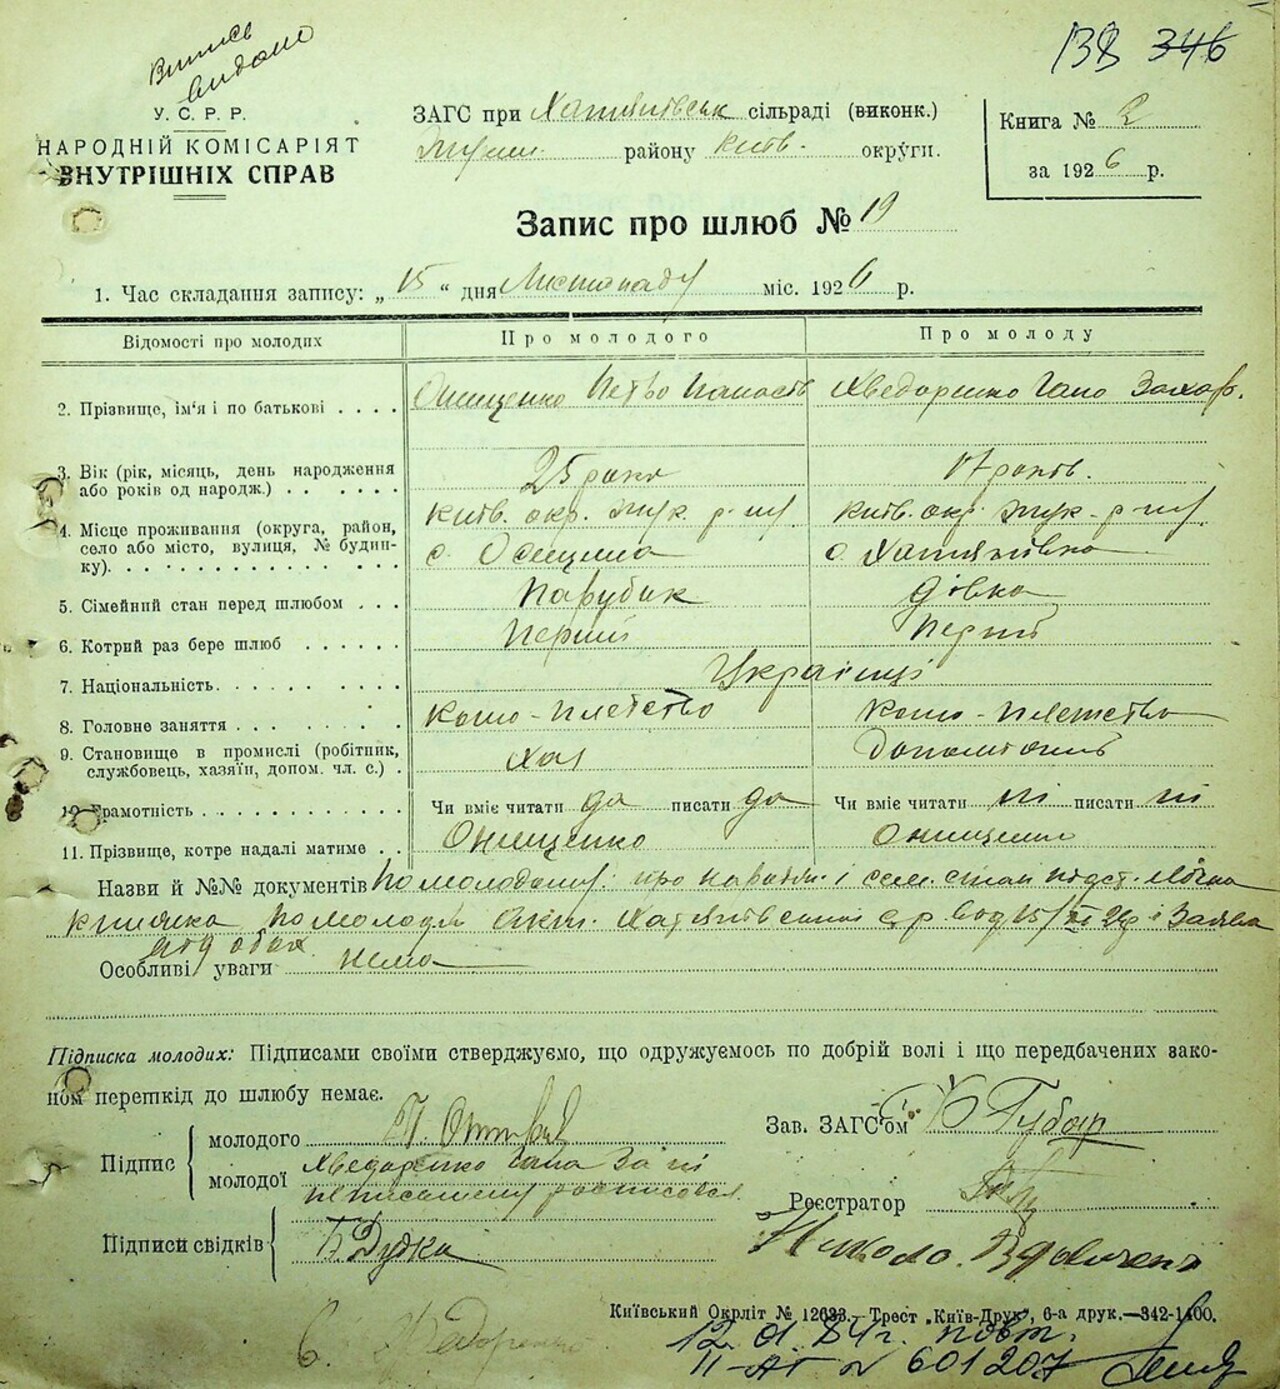 Випись
видано
138 346
У. С. Р. Р.
НАРОДНІЙ КОМІСАРІЯТ
ВНУТРІШНІХ СПРАВ
ЗАГС при Хатянівськ сільраді (виконк.)
району Київ. округи.
Книга № 2
за 1926 р.
Запис про шлюб № 19
1. Час складання запису: „15“ дня Листопаду міс. 1926 р.
Відомості про молодих
Про молодого
Про молоду
2. Прізвище, ім'я і по батькові . . . .
Онищенко Петро Панасів
Хведоренко Гана Захар.
3. Вік (рік, місяць, день народження або років од народж.) . . . . . .
25 роки
17 років.
4. Місце проживання (округа, район, село або місто, вулиця, № будинку). . . . . . . . . . . . . .
Київ. окр. Жук. р-ну
с. Осещина
Київ. окр. Жук. р-ну
с. Хатянівка
5. Сімейний стан перед шлюбом . . .
Парубак
Дівка
6. Котрий раз бере шлюб . . . . . .
Перший
Перший
7. Національність. . . . . . . . . . .
Українці
8. Головне заняття . . . . . . . . .
Кошо-плетство
Кошо-плетство
9. Становище в промислі (робітник, службовець, хазяїн, допом. чл. с.) .
Хаз
10. Грамотність . . . . . . . . . . . .
Чи вміє читати да писати да
Чи вміє читати ні писати ні
11. Прізвище, котре надалі матиме . .
Онищенко
Онищенко
Назви й №№ документів По молодому: про і сем. стан
книжка По молодій Акт. від 15/XI 26р і Заява
від обох.
Особливі уваги нема
Підписка молодих: Підписами своїми стверджуємо, що одружуємось по добрій волі і що передбачених зако-
ном перешкід до шлюбу немає.
Підпис
молодого
молодої Хведоренко Гана За ні
росписовся
Зав. ЗАГС'ом Губар
Реєстратор
Підписи свідків
Дудка
Микола
Київський Окрліт № 12633.—Трест „Київ-Друк“, 6-а друк.—342-1400.
12. 01. 84г. повт.
II-АГ № 601207